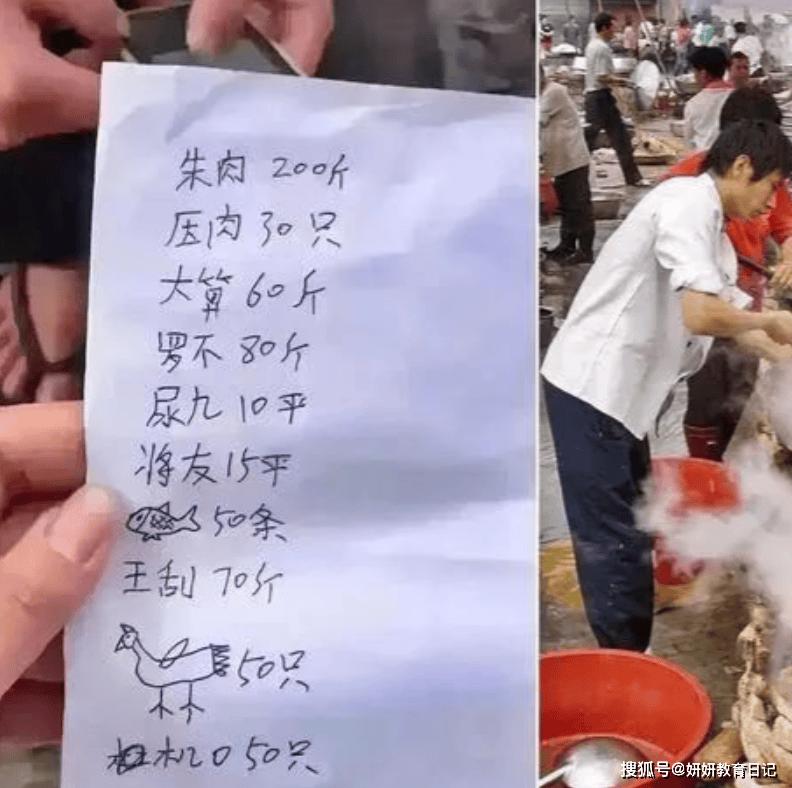 朱肉 200斤
压肉 30只
大算 60斤
罗不 80斤
尿九 10平
将友 15平
50条
王刮 70斤
50只
机口 50只
搜狐号@妍妍教育日记